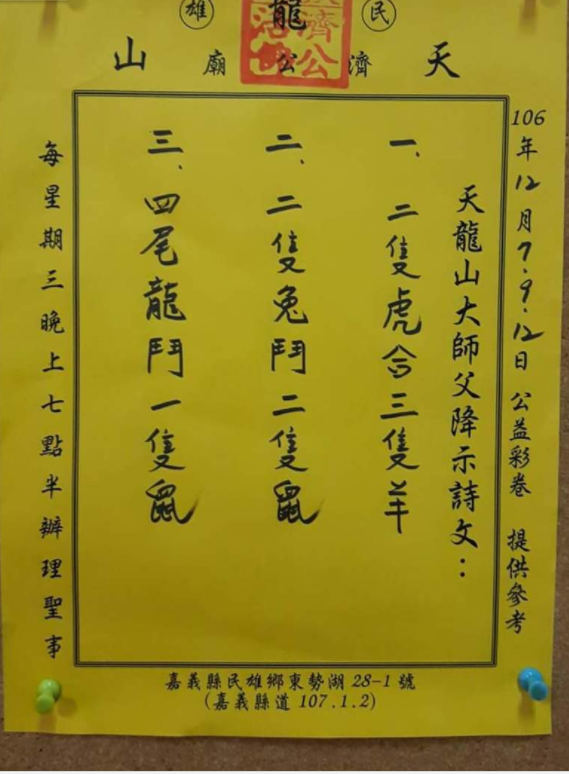 民雄
天龍山
濟公廟
106年12月7.9.12日 公益彩卷 提供參考
天龍山大師父降示詩文：
一、二隻虎合三隻羊
二、二隻兔鬥二隻鼠
三、四尾龍鬥一隻鼠
每星期三晚上七點半辦理聖事
嘉義縣民雄鄉東勢湖28-1號
(嘉義縣道107.1.2)